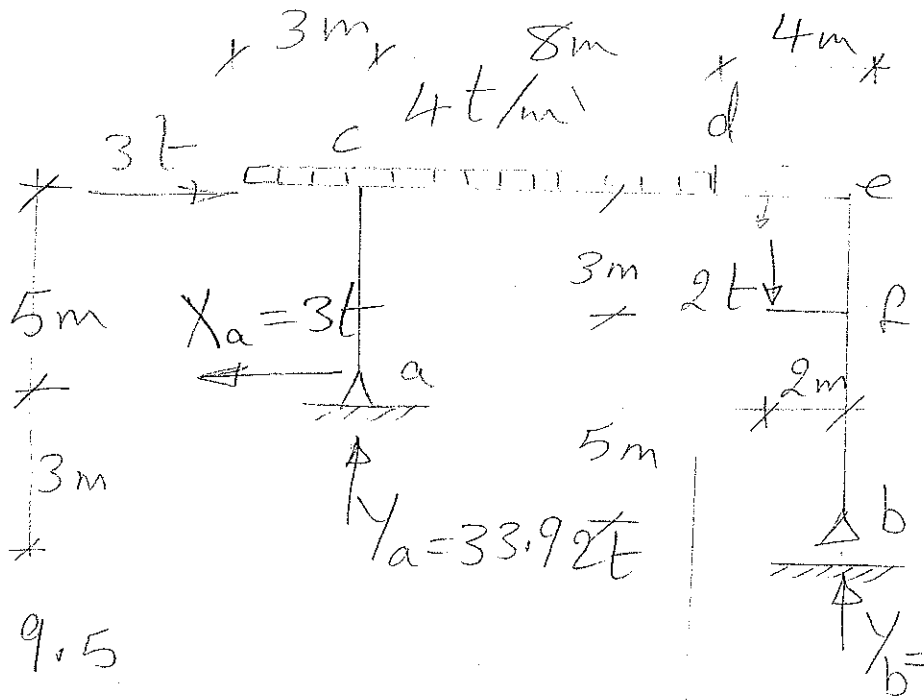 3m 8m 4m
4t/m'
3t c d
e
3m
5m Xa=3t 2t f
a 2m
3m 5m b
Ya=33.92t
9.5 Yb=